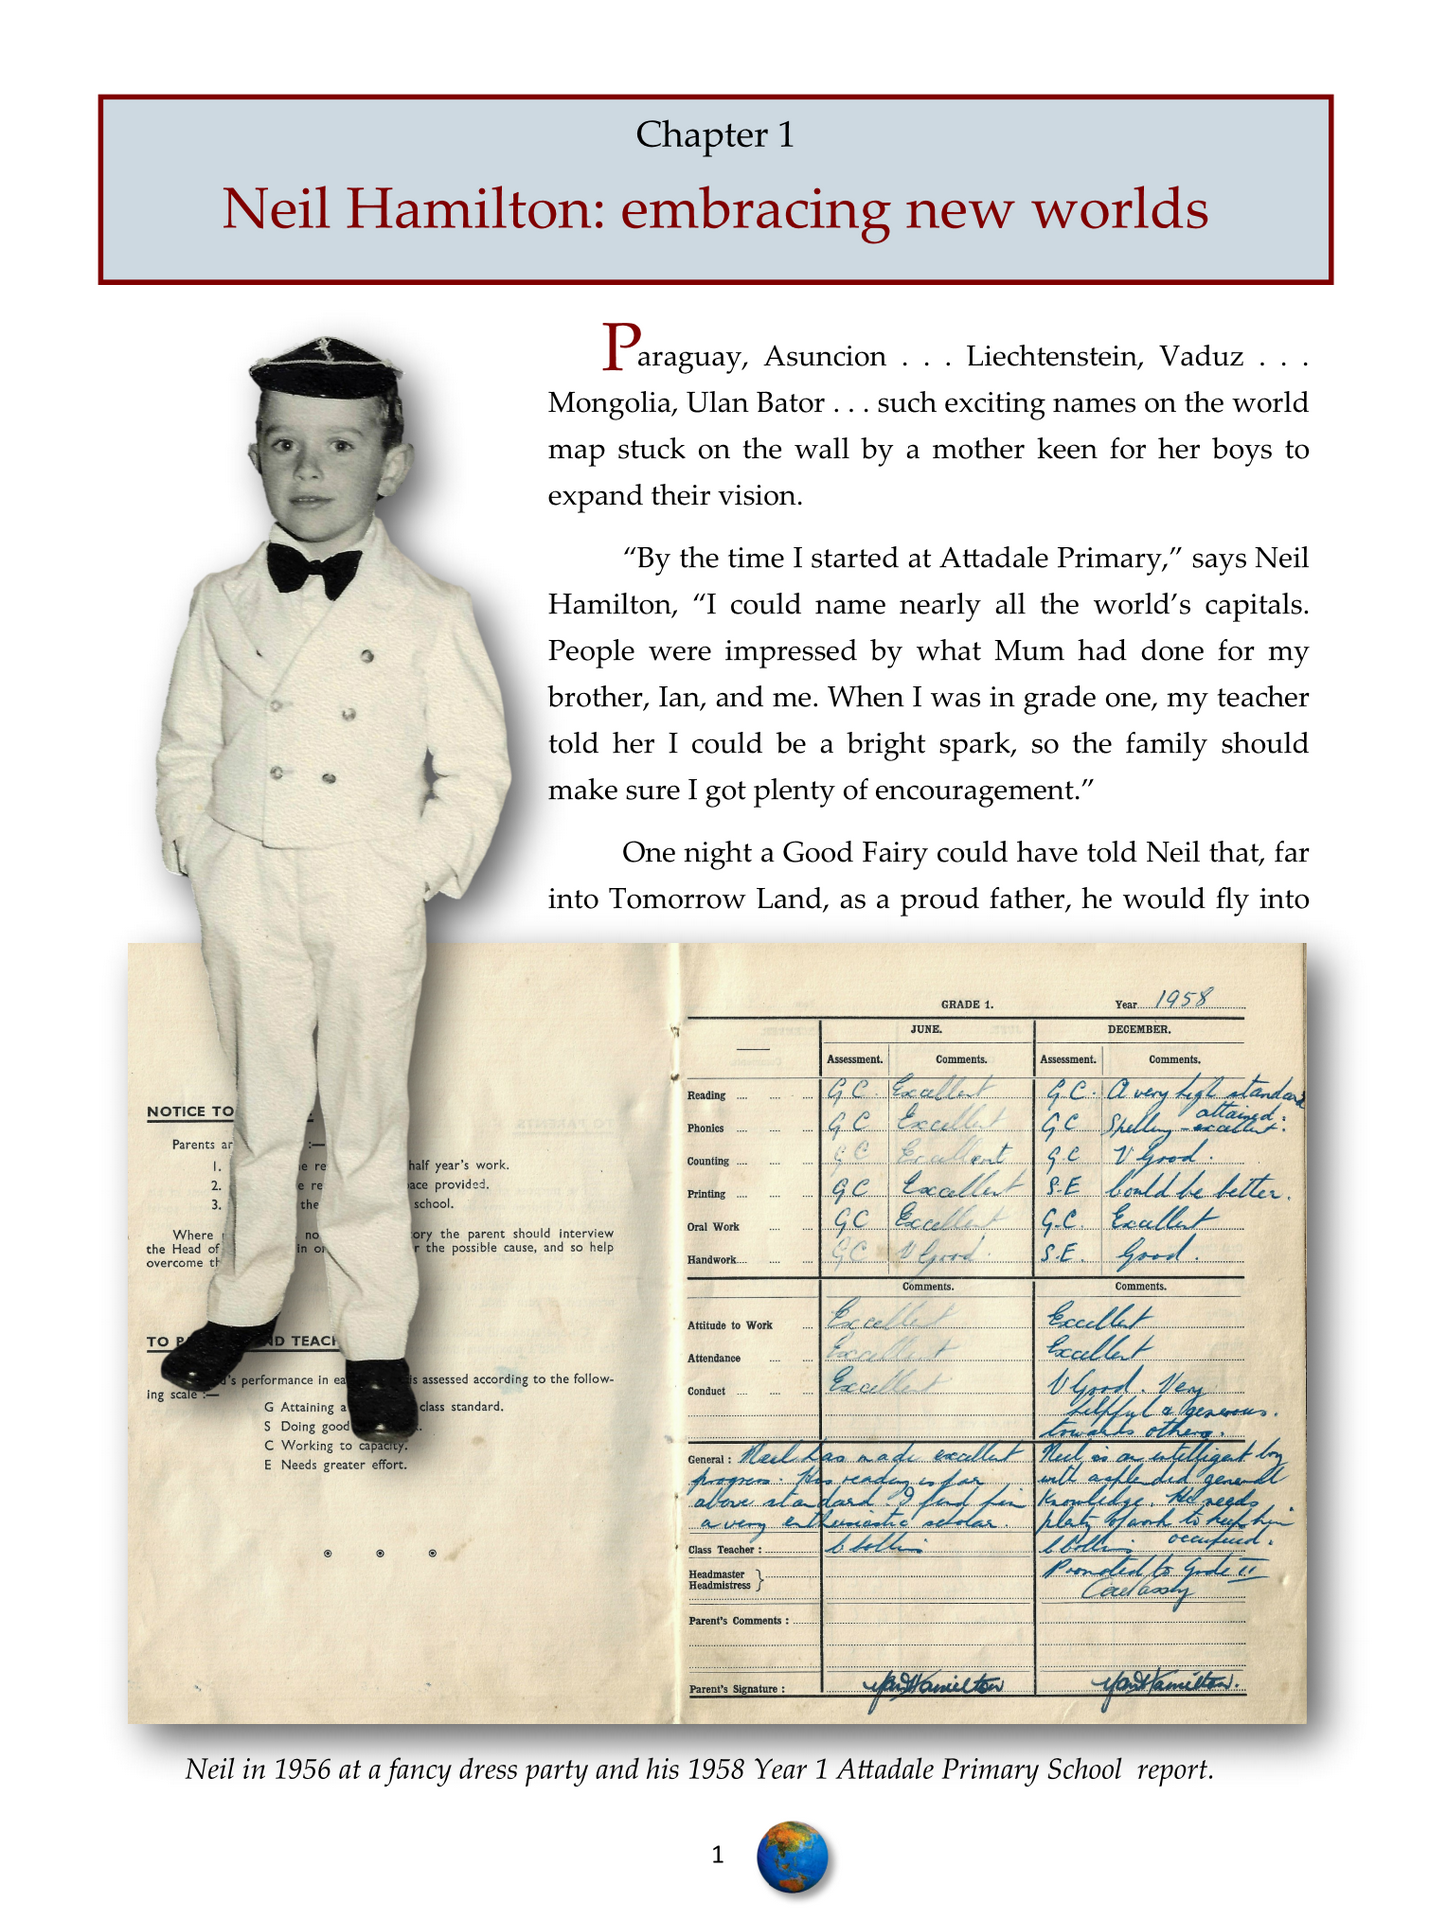 Chapter 1
Neil Hamilton: embracing new worlds
Paraguay, Asuncion . . . Liechtenstein, Vaduz . . .
Mongolia, Ulan Bator . . . such exciting names on the world
map stuck on the wall by a mother keen for her boys to
expand their vision.
“By the time I started at Attadale Primary,” says Neil
Hamilton, “I could name nearly all the world’s capitals.
People were impressed by what Mum had done for my
brother, Ian, and me. When I was in grade one, my teacher
told her I could be a bright spark, so the family should
make sure I got plenty of encouragement.”
One night a Good Fairy could have told Neil that, far
into Tomorrow Land, as a proud father, he would fly into
NOTICE TO
Parents :—
1. half year's work.
2. provided.
3. the school.
Where the parent should interview
the Head of the possible cause, and so help
overcome
TO AND
performance in is assessed according to the follow-
ing scale :—
G Attaining class standard.
S Doing good
C Working to capacity.
E Needs greater effort.
GRADE 1. Year 1958
JUNE. DECEMBER.
Assessment. Comments. Assessment. Comments.
Reading G C. Excellent G.C. A very high standard attained.
Phonics G C Excellent G C Spelling - excellent.
Counting G C Excellent G.C V Good.
Printing G C Excellent S.E Could be better.
Oral Work G C Excellent G.C. Excellent
Handwork G C V Good. S.E. Good.
Comments. Comments.
Attitude to Work Excellent Excellent
Attendance Excellent Excellent
Conduct Excellent V Good. Very
helpful & generous
towards others.
General : Neil has made excellent Neil is an intelligent boy
progress. His reading is far with a splendid general
above standard. I find him knowledge. He needs
a very enthusiastic scholar. plenty of work to keep him
occupied.
Class Teacher :
Headmaster Promoted to Grade II
Headmistress
Parent's Comments :
Parent's Signature : Hamilton Hamilton.
Neil in 1956 at a fancy dress party and his 1958 Year 1 Attadale Primary School report.
1